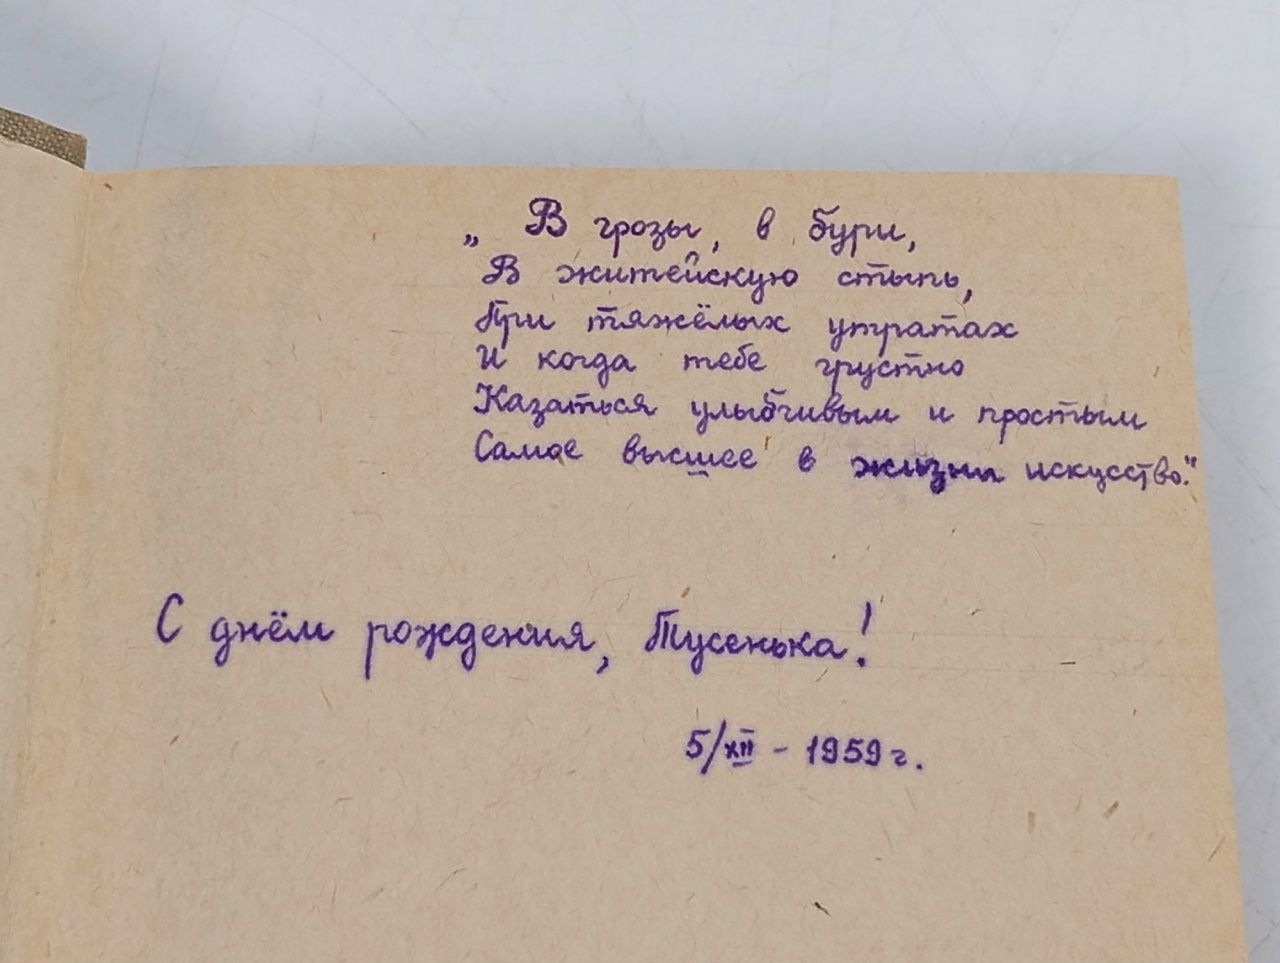 „В грозы, в бури,
В житейскую стынь,
При тяжёлых утратах
И когда тебе грустно
Казаться улыбчивым и простым
Самое высшее в жизни искусство."
С днём рождения, Тусенька!
5/XII - 1959 г.